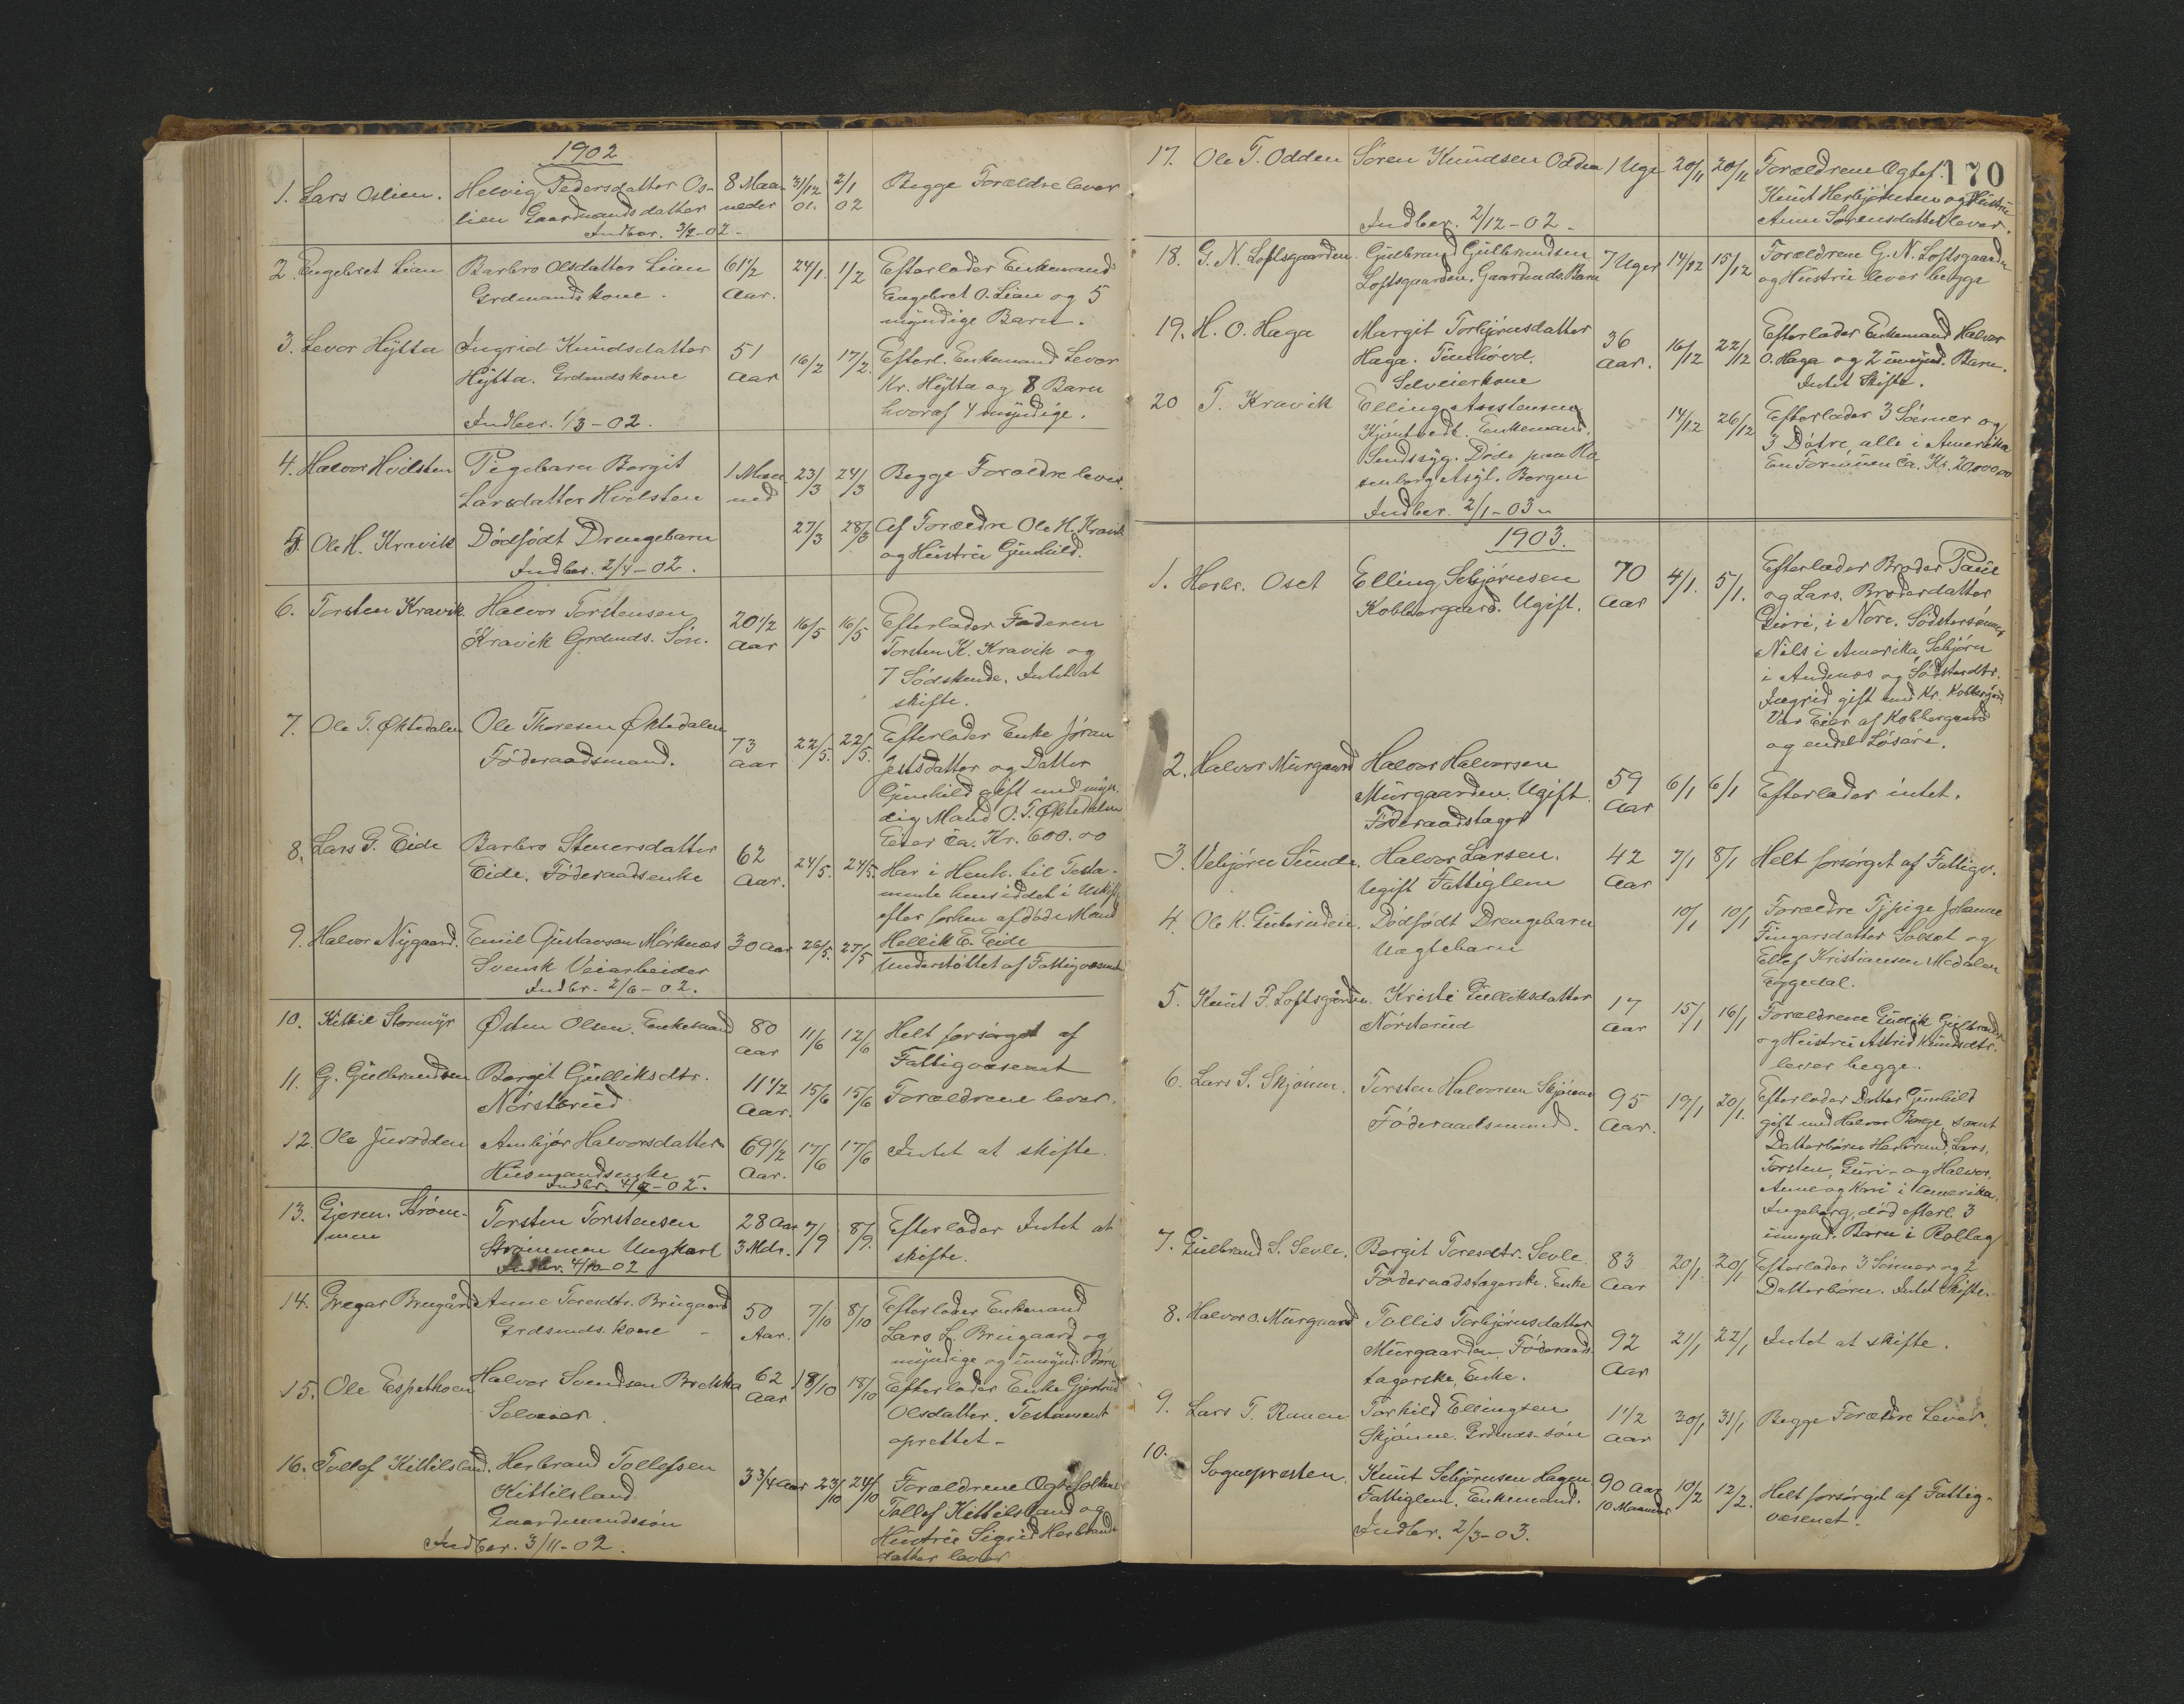 1902
1. Lars Oslien. Helvig Pedersdatter Os- 8 Maa- 31/12 2/1 Begge Forældre lever
lien Gaardmandsdatter neder 01. 02
Indber. 3/2-02-
2. Engebret Lian Barbro Olsdatter Lian 61 1/2 24/1. 1/2 Efterlader Enkemand
Grdmandskone. Aar. Engebret O. Lian og 5
myndige Barn.
3. Levor Hÿtta Ingrid Knudsdatter 51 16/2 17/2. Efterl. Enkemand Levor
Hÿtta. Grdmdskone Aar Kr. Hÿtta og 8 Barn
hvoraf 4 myndige.
Indber. 1/3-02.
4. Halvor Hvilsten Pigebarn Bergit 1 Maa- 23/3 24/3 Begge Forældre lever.
Larsdatter Hvilsten ned
5. Ole H. Kravik Dödfödt Drengebarn 27/3 28/3 Af Forældre Ole H. Kravik
og Hustru Gunhild.
Indber. 2/4-02.
6. Torsten Kravik. Halvor Torstensen 20 1/2 16/5 16/5 Efterlader Faderen
Kravik Grdmds. Sön. Aar Torsten K. Kravik og
7 Södskende. Intet at
skifte.
7. Ole T. Øktedalen Ole Thoresen Øktedalen 73 22/5. 22/5. Efterlader Enke Jöran
Föderaadsmand. Aar Jensdatter og Datter
Gunhild gift med myn-
dig Mand O. T. Øktedalen
Eier Ca. Kr. 600.00
8. Lars P. Eide Barbro Stenersdatter 62 24/5. 24/5. Har i Henh. til Testa-
Eide. Föderaadsenke Aar. mente hensiddet i Uskifte
efter forhen afdöde Mand
Hellik E. Eide
9. Halvor Nygaard. Emil Gustavsen Mörknæs 30 Aar 26/5. 27/5 Understöttet af Fattigvæsenet
Svensk Veiarbeider
Indbr. 2/6-02.
10. Kittil Stormyr Østen Olsen. Enkemand 80 11/6 12/6 Helt forsörget af
Aar Fattigvæsenet
11. G. Gulbrandsen Bergit Gulliksdtr. 11 1/2 15/6 15/6 Forældrene lever.
Nörsterud Aar.
12. Ole Juvodden Ambjör Halvorsdatter 69 1/2 17/6 17/6 Intet at skifte.
Husmandsenke Aar.
Indbr. 4/7-02.
13. Gjerm. Ström- Torsten Torstensen 28 Aar 7/9 8/9. Efterlader Intet at
men Strömmen Ungkarl 3 Mdr. skifte.
Indbr. 4/10-02
14. Gregar Brugård Anne Toresdtr. Brugaard 50 7/10 8/10 Efterlader Enkemand
Grdsmds. kone - Aar. Lars L. Brugaard og
myndige og umynd. Börn
15. Ole Espethoen Halvor Svendsen Brekka 62 18/10 18/10 Efterlader Enke Gjertrud
Selveier. Aar Olsdatter. Testament
oprettet-
16. Tollef Kittilsland. Herbrand Tollefsen 3 3/4 Aar 23/10 24/10 Forældrene Ægtefolkene
Kittilsland Tollef Kittilsland og
Gaardmandssön Hustru Sigrid Herbrands-
Indber. 3/11-02. datter lever
170
17. Ole T. Odden Sören Knudsen Odden 1 Uge 20/11 20/11 Forældrene Ægtef.
Knut Herbjörnsen og Hustru
Anne Sörensdatter lever.
Indber. 2/12-02-
18. G. N. Loftsgaarden. Gulbrand Gulbrandsen 7 Uger 14/12 15/12 Forældrene G. N. Loftsgaarden
Loftsgaarden. Gaardmds. Barn og Hustru lever begge
19. H. O. Haga Margit Torbjörnsdatter 36 16/12 22/12 Efterlader Enkemand Halvor
Haga. Tunhövd. Aar. O. Haga og 2 umynd. Barn.
Selveierkone Intet Skifte.
20 T. Kravik Elling 14/12 26/12 Efterlader 3 Sönner og
Enkemand. 3 Dötre, alle i Amerika
Sindssyg. Döde paa Ro En Formuen Ca. Kr. 20,000.00
senborg Asyl. Bergen
Indber. 2/1-03-
1903.
1. Herbr. Oset Elling Sebjörnsen 70 4/1. 5/1. Efterlader Broder Paul
Kobbergaard. Ugift. Aar og Lars. Broderdatter
Guri, i Nore. Södstersönner
Nils i Amerika, Sebjörn
i Andenæs og Södsterdtr.
Ingrid gift med Kr. Kobbergård
Var Eier af Kobbergaard
og endel Lösöre.
2. Halvor Murgaard Halvor Halvorsen 59 6/1 6/1 Efterlader intet.
Murgaarden. Ugift. Aar
Föderaadstager
3. Vebjörn Sunde. Halvor Larsen. 42 7/1 8/1 Helt forsörget af Fattigv.
Ugift Fattiglem Aar
4. Ole K. Dödfödt Drengebarn 10/1 10/1 Forældre Tjpige Johanne
Uægtebarn Fingarsdatter og
Ellef Kristiansen Medalen
Eggedal.
5. Knut F. Loftsgården. Kristi Gulliksdatter 17 15/1 16/1 Forældrene Gullik Gulbrands.
Nörsterud Aar og Hustru Astrid Knudsdtr.
lever begge.
6. Lars S. Skjönne. Torsten Halvorsen Skjönne 95 19/1 20/1. Efterlader Datter Gunhild
Föderaadsmand. Aar. gift med Halvor Borge, samt
Datterbörn Herbrand, Lars,
Torsten, Guri- og Halvor,
Anne og Kari i Amerika.
Ingeborg, död efterl. 3
umynd. Barn i Rollag
7. Gulbrand S. Sevle. Bergit Toresdtr. Sevle 83 20/1. 20/1 Efterlader 3 Sönner og 2
Föderaadstagerske. Enke Aar Datterbörn. Intet Skifte.
8. Halvor O. Murgaard Tollis Torbjörnsdatter 92 21/1 22/1 Intet at skifte.
Murgaarden. Föderaads- Aar
tagerske, Enke.
9. Lars T. Ruuen Torkild Ellingsen 1 1/2 30/1 31/1 Begge Forældre Lever.
Skjönne. Grdmds-sön Aar
10. Sognepresten. Knut Sebjörnsen Hagen 90 Aar 10/2 12/2. Helt forsörget af Fattig-
Fattiglem. Enkemand. 10 Maaneder væsenet.
Indbr. 2/3-03.